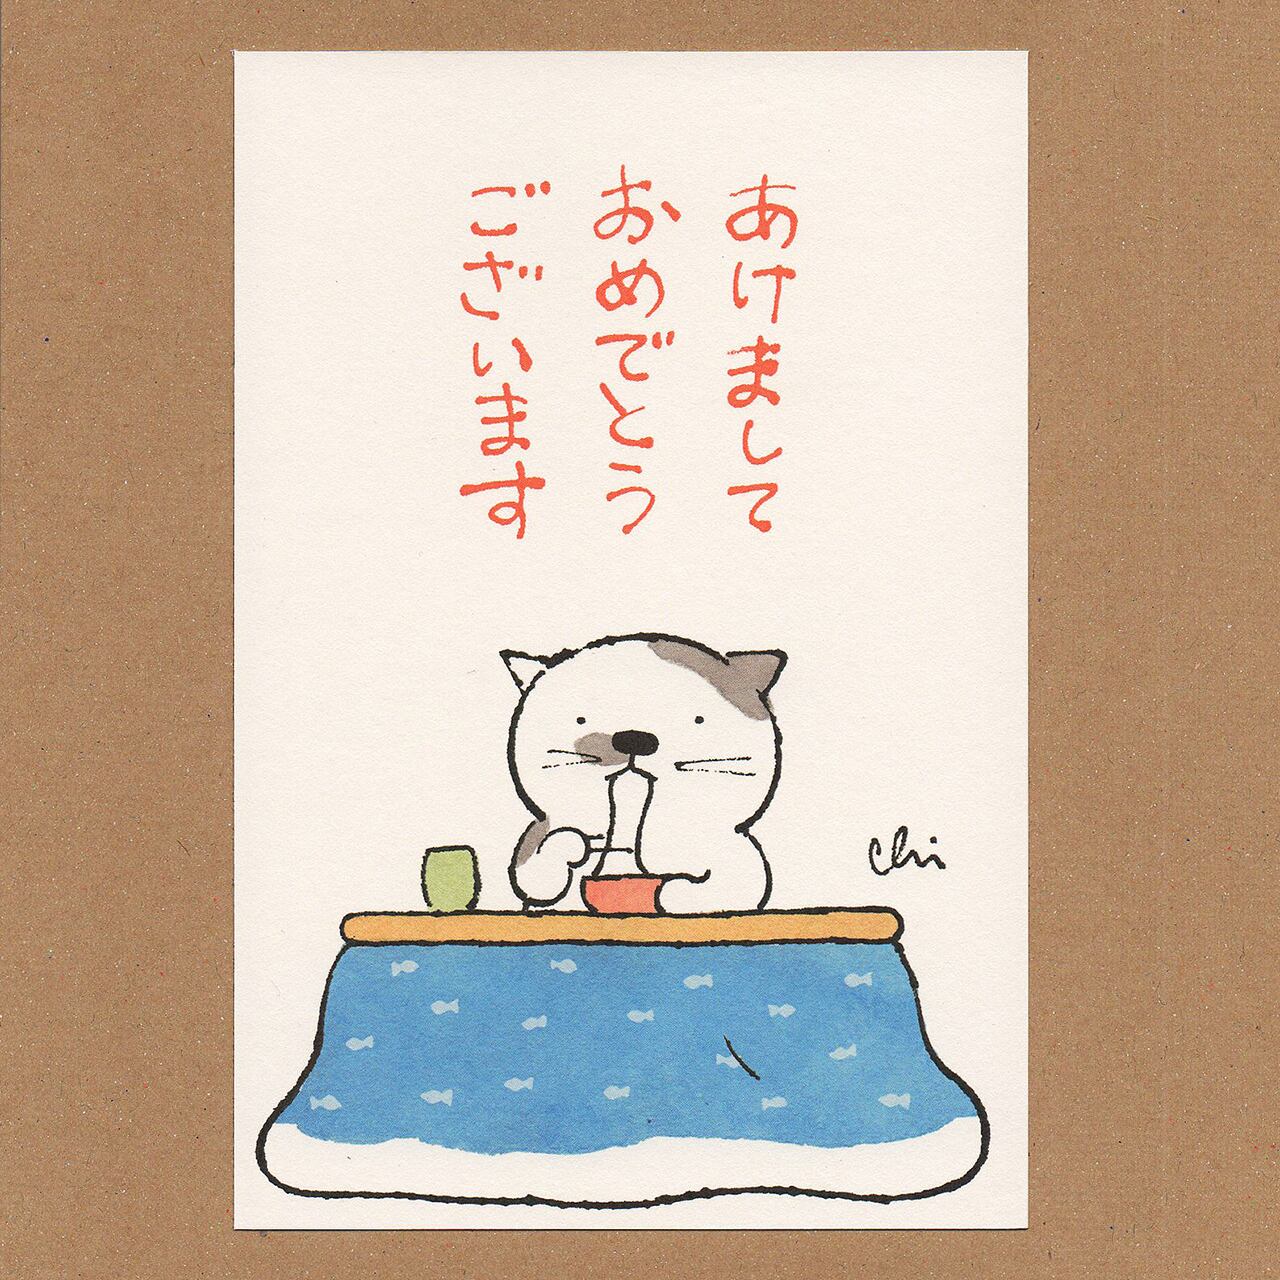 あけまして
おめでとう
ございます
chi